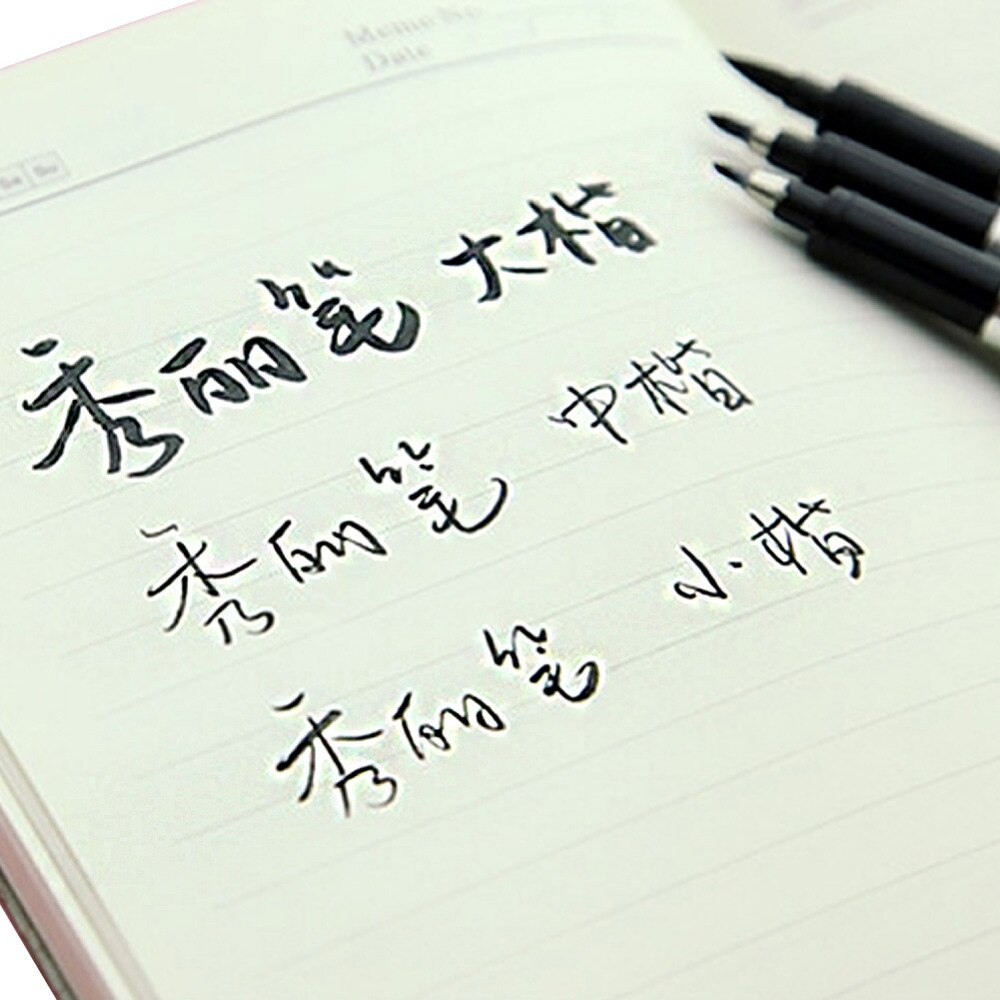 Memo No.
Date
Sa Su
秀丽笔 大楷
秀丽笔 中楷
秀丽笔 小楷